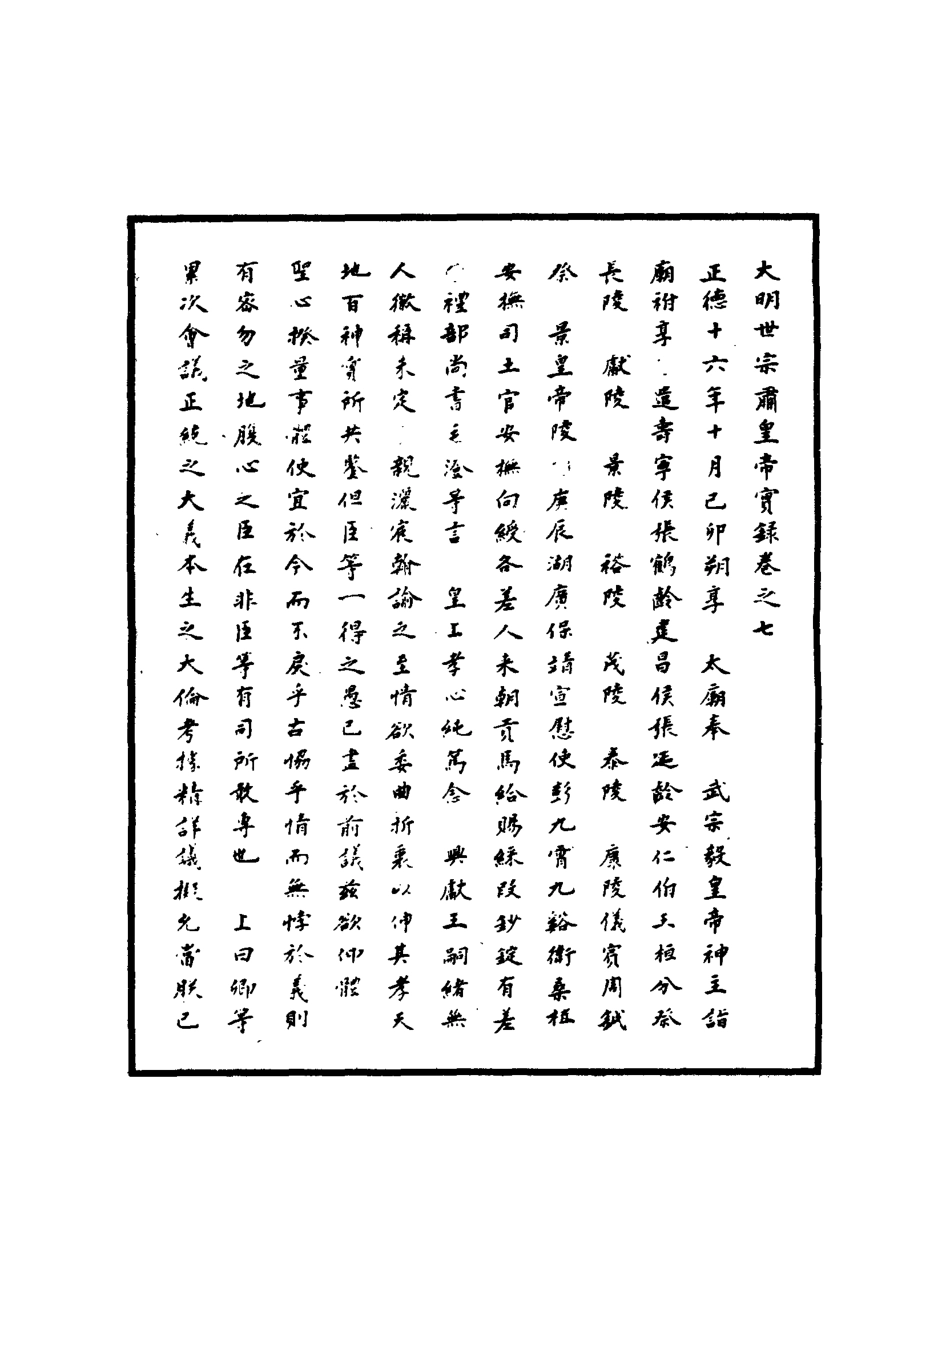 大明世宗肅皇帝實錄卷之七
正德十六年十月己卯朔享　太廟奉　武宗毅皇帝神主詣
廟祔享　遣壽寧侯張鶴齡建昌侯張延齡安仁伯王桓分祭
長陵　獻陵　景陵　裕陵　茂陵　泰陵　康陵儀賓周鉞
祭　景皇帝陵　庚辰湖廣保靖宣慰使彭九霄九谿衛桑植
安撫司土官安撫向綬各差人來朝貢馬給賜綵段鈔錠有差
禮部尚書毛澄等言　皇上孝心純篤念　興獻王嗣緒無
人徽稱未定　親灑宸翰諭之至情欲委曲折衷以伸其孝天
地百神實所共鑒但臣等一得之愚已盡於前議茲欲仰體
聖心揆量事體使宜於今而不戾乎古協乎情而無悖於義則
有密勿之地腹心之臣在非臣等有司所敢專也　上曰卿等
累次會議正統之大義本生之大倫考據精詳議擬允當朕已